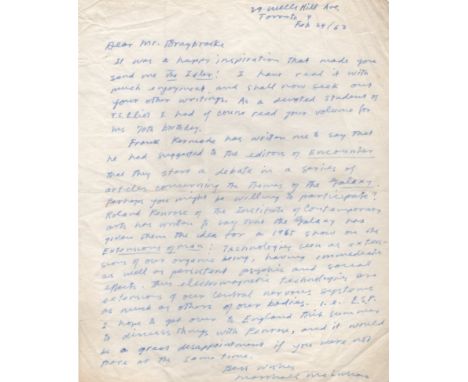 29 Wells Hill Ave,
Toronto 4
Feb 24/63
Dear Mr. Braybrooke
It was a happy inspiration that made you
send me The Idler! I have read it with
much enjoyment, and shall now seek out
your other writings. As a devoted student of
T.S. Eliot I had of course read your volume for
his 70th birthday.
Frank Kermode has written me to say that
he had suggested to the editors of Encounter
that they start a debate in a series of
articles concerning the themes of the Galaxy.
Perhaps you might be willing to participate?
Roland Penrose of the Institute of Contemporary
Arts has written to say that the Galaxy has
given them the idea for a 1965 show on the
Extensions of man: Technologies seen as exten-
sions of our organic being, having immediate
as well as persistent psychic and social
effects. Thus electromagnetic technologies are
extensions of our central nervous systems
as much as others of our bodies. i.e. E.S.P.
I hope to get over to England this summer
to discuss things with Penrose, and it would
be a great disappointment if you were not
there at the same time.
Best wishes
Marshall McLuhan